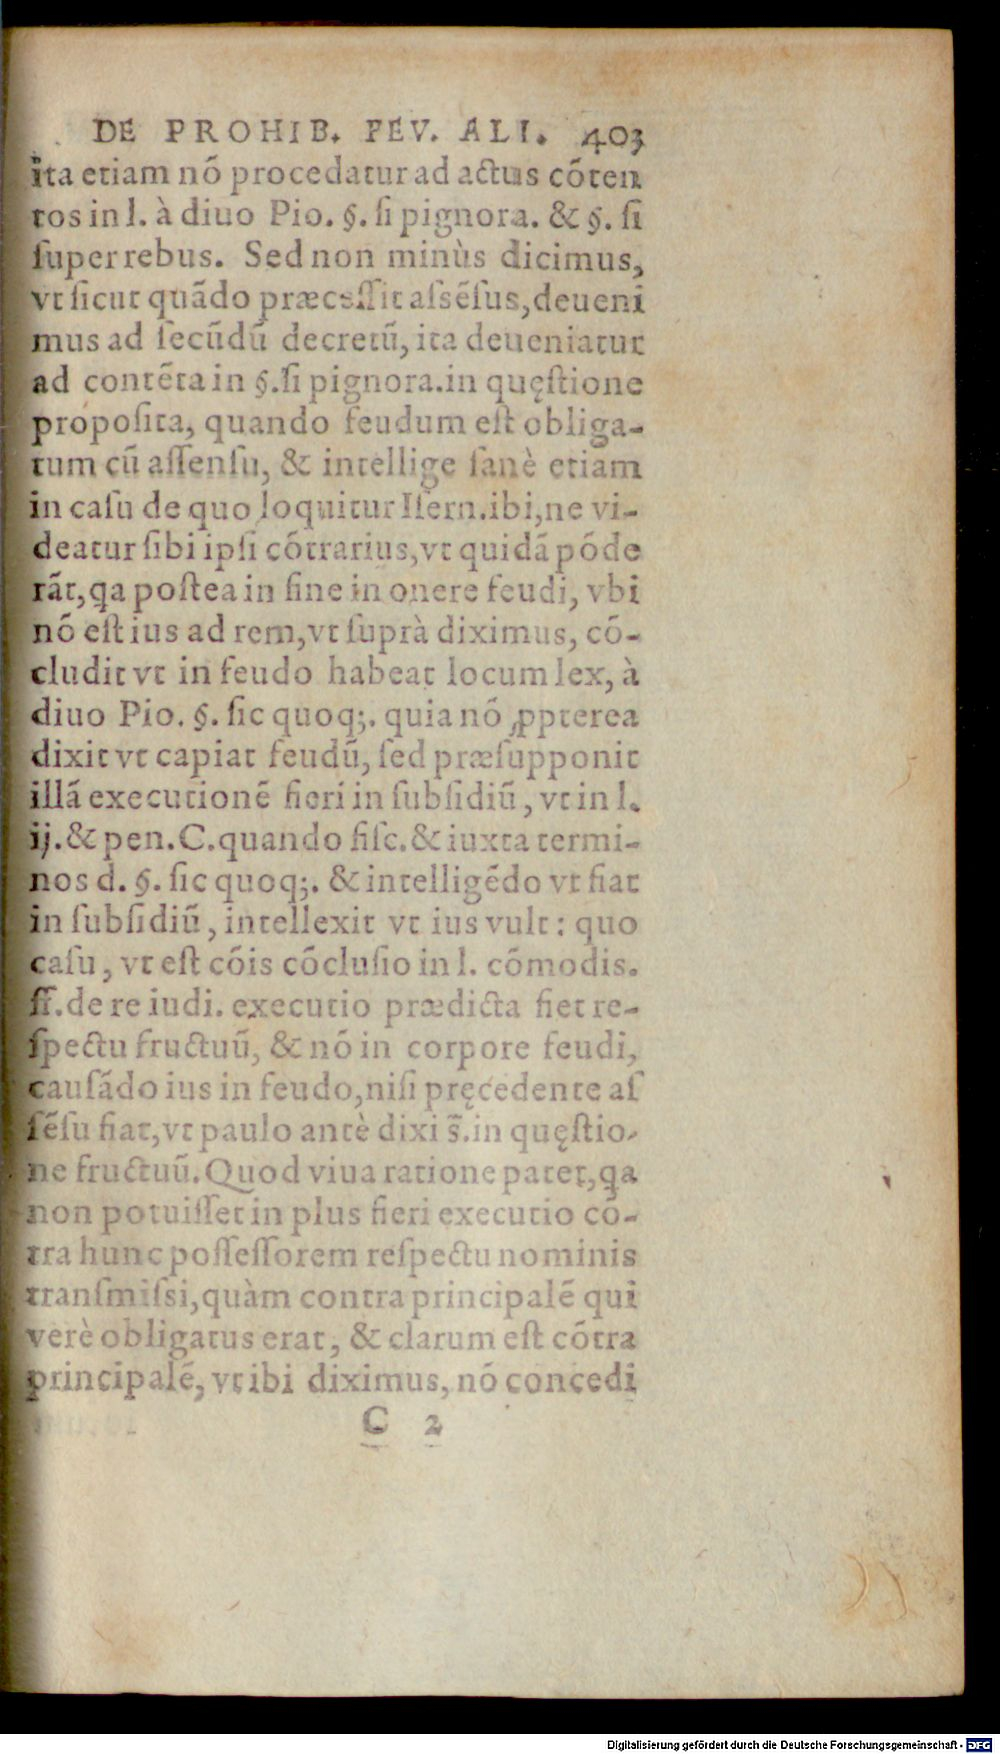 DE PROHIB. FEV. ALI. 403
ita etiam nõ procedatur ad actus cõten
tos in l. à diuo Pio. §. ſi pignora. & §. ſi
ſuper rebus. Sed non minùs dicimus,
vt ſicut quãdo præceſſit aſsẽſus, deueni
mus ad ſecũdũ decretũ, ita deueniatur
ad contẽta in §. ſi pignora. in quęſtione
propoſita, quando feudum eſt obliga-
tum cũ aſſenſu, & intellige ſanè etiam
in caſu de quo loquitur Iſern. ibi, ne vi-
deatur ſibi ipſi cõtrarius, vt quidã põde
rãt, qa poſtea in fine in onere feudi, vbi
nõ eſt ius ad rem, vt ſuprà diximus, cõ-
cludit vt in feudo habeat locum lex, à
diuo Pio. §. ſic quoq;. quia nõ ꝓpterea
dixit vt capiat feudũ, ſed præſupponit
illã executionẽ fieri in ſubſidiũ, vt in l.
ij. & pen. C. quando fiſc. & iuxta termi-
nos d. §. ſic quoq;. & intelligẽdo vt fiat
in ſubſidiũ, intellexit vt ius vult: quo
caſu, vt eſt cõis cõcluſio in l. cõmodis.
ff. de re iudi. executio prædicta fiet re-
ſpectu fructuũ, & nõ in corpore feudi,
cauſãdo ius in feudo, niſi pręcedente aſ
ſẽſu fiat, vt paulo antè dixi s̃. in quęſtio-
ne fructuũ. Quod viua ratione patet, qa
non potuiſſet in plus fieri executio cõ-
tra hunc poſſeſſorem reſpectu nominis
tranſmiſsi, quàm contra principalẽ qui
verè obligatus erat, & clarum eſt cõtra
principalẽ, vt ibi diximus, nõ concedi
C 2
Digitalisierung gefördert durch die Deutsche Forschungsgemeinschaft - DFG